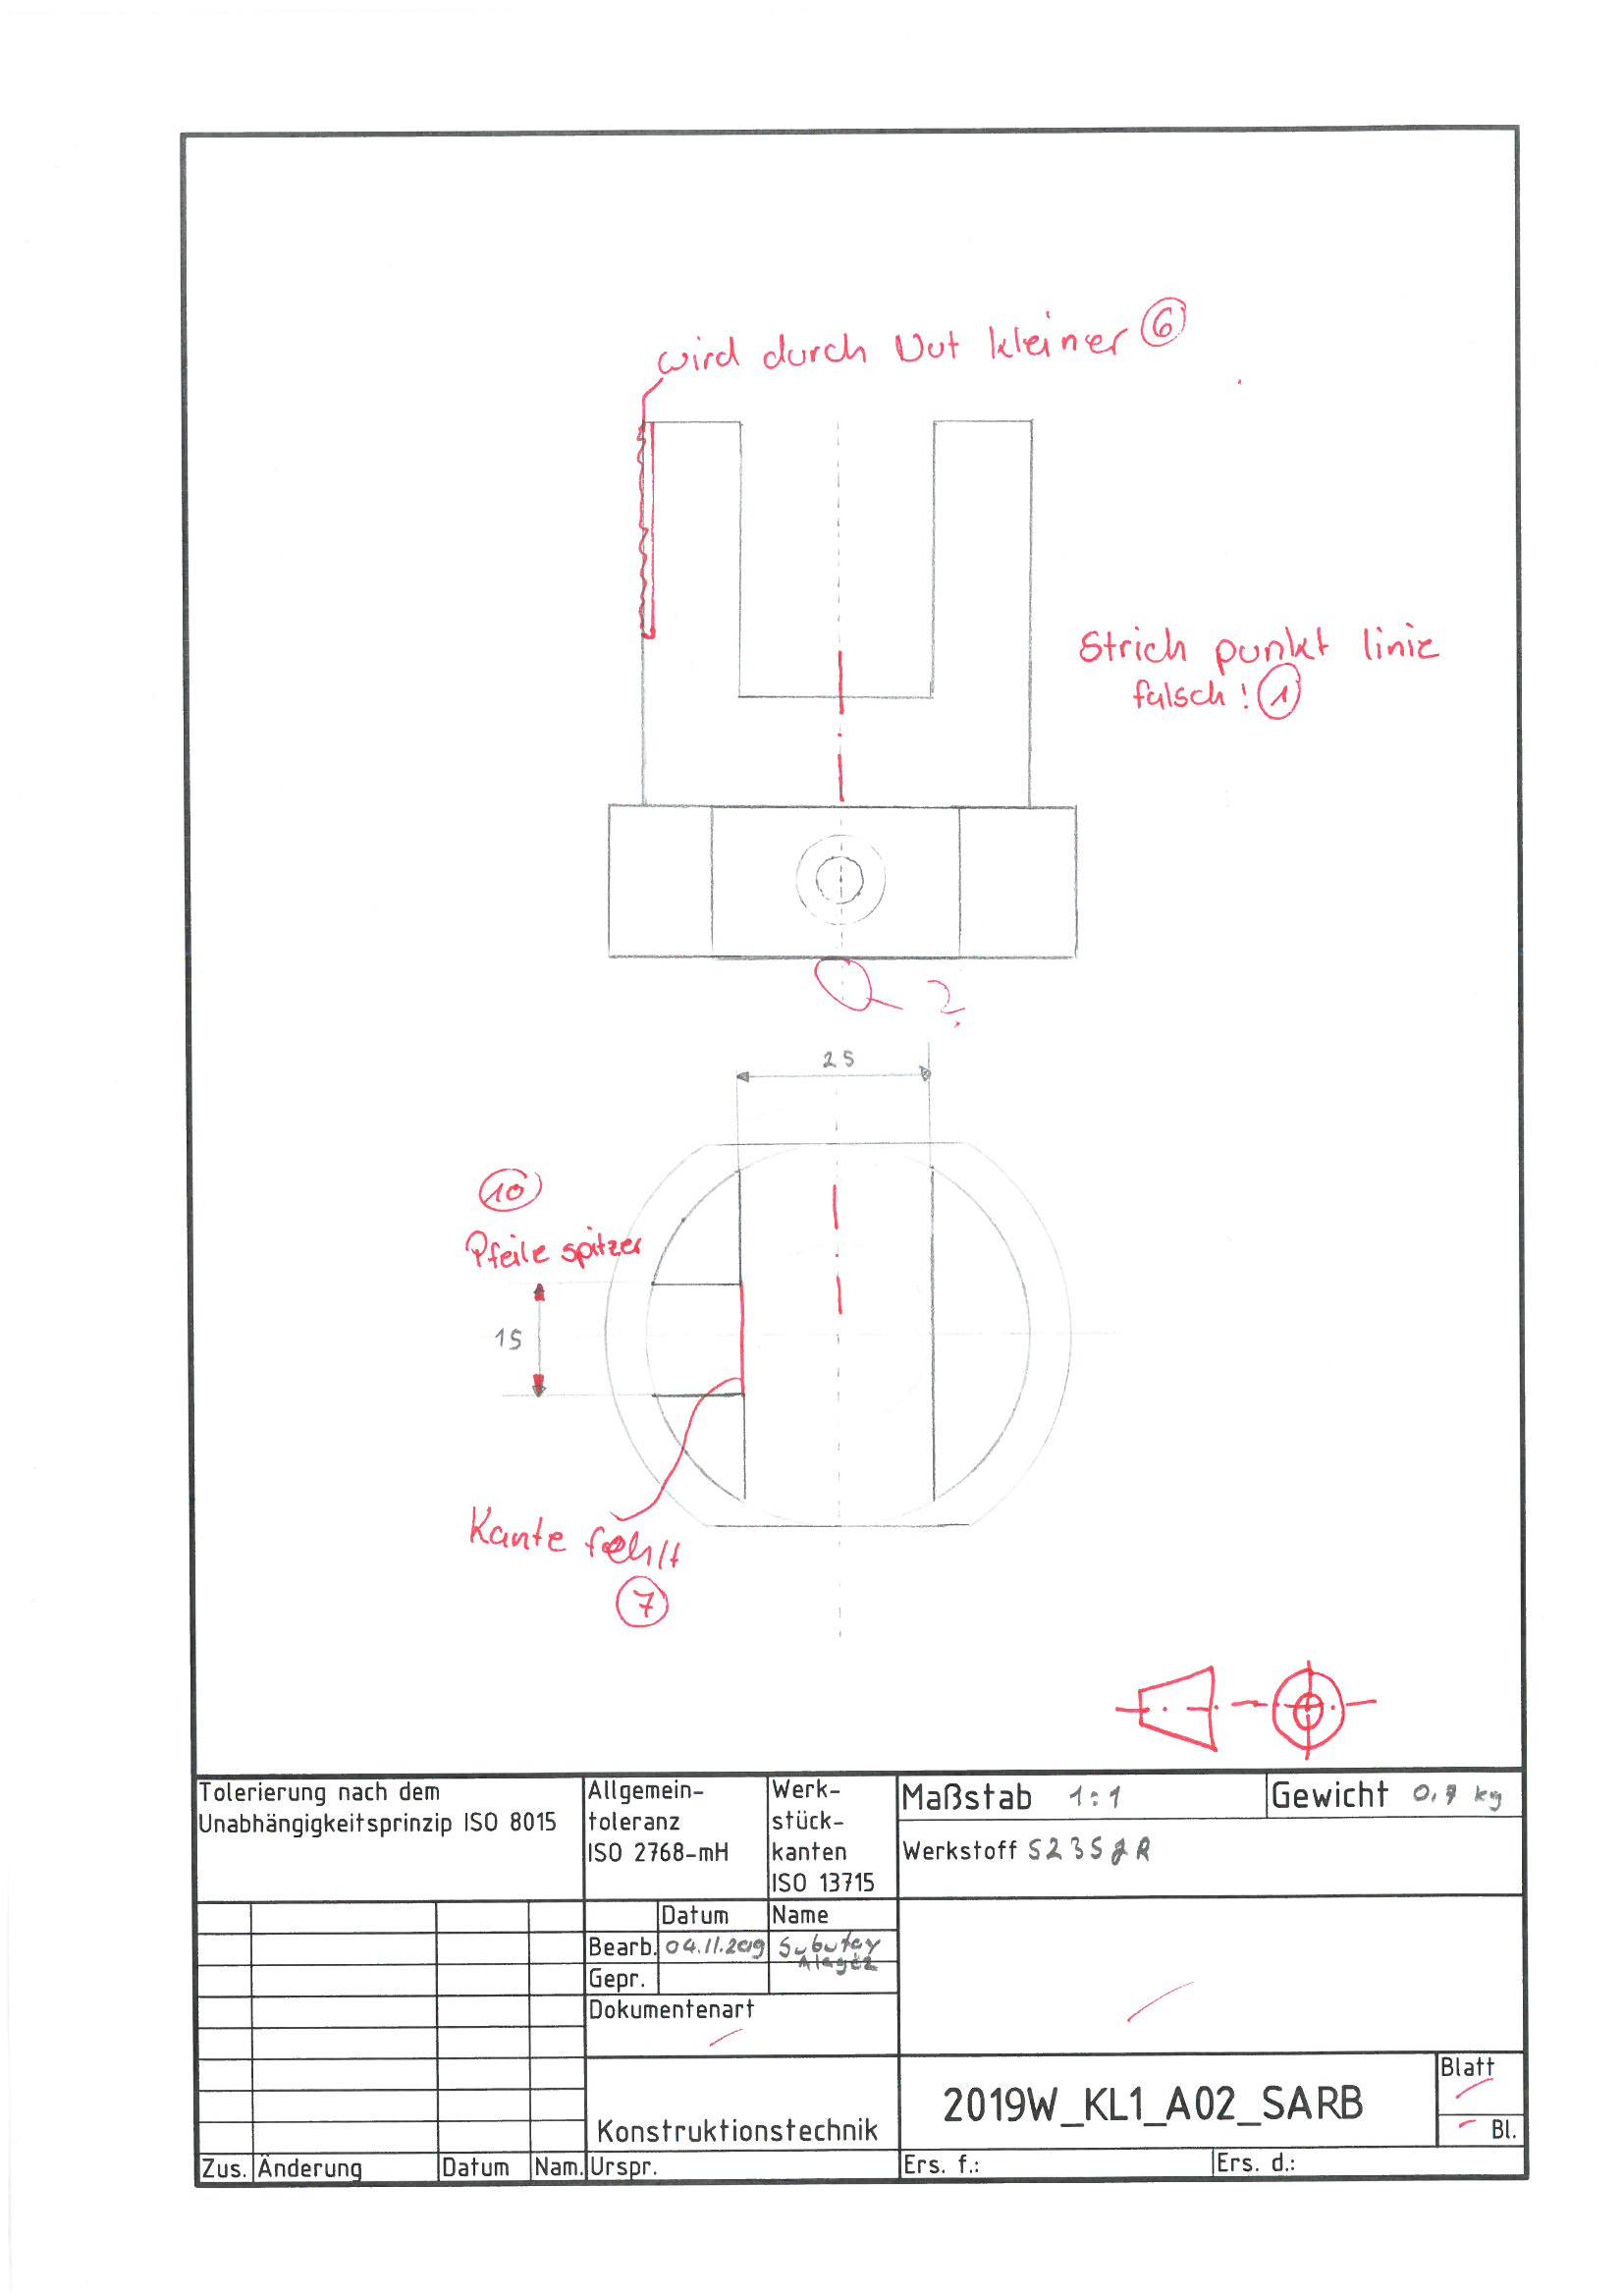 wird durch Nut kleiner 6
Strich punkt linie
falsch! 1
?
25
10
Pfeile spitzer
15
Kante fehlt
7
Tolerierung nach dem
Unabhängigkeitsprinzip ISO 8015
Allgemein-
toleranz
ISO 2768-mH
Werk-
stück-
kanten
ISO 13715
Maßstab 1:1
Gewicht 0,7 kg
Werkstoff S235JR
Datum
Name
Bearb. 04.11.2019 Subutay
Alagöz
Gepr.
Dokumentenart
Konstruktionstechnik
2019W_KL1_A02_SARB
Blatt
Bl.
Zus. Änderung Datum Nam. Urspr. Ers. f.: Ers. d.: